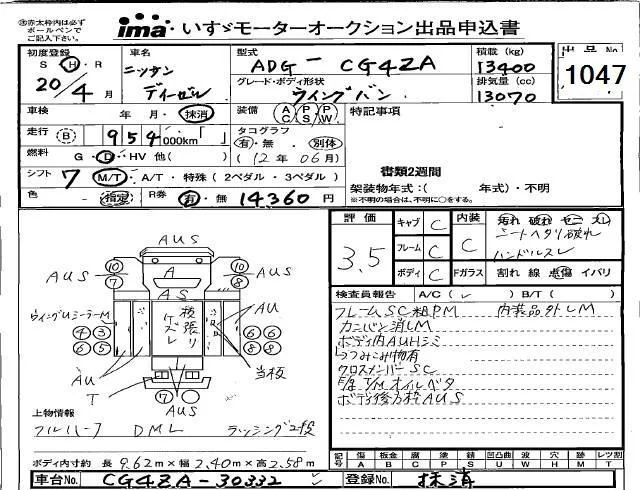 ㊟赤太枠内は必ず
ボールペンで
ご記入下さい。
ima いすゞモーターオークション出品申込書
初度登録 車名 型式 積載(kg) 出品No
S H・R ニッサン ADG－CG4ZA 13400 1047
20／4月 ディーゼル グレード・ボディ形状 排気量(cc)
ウイングバン 13070
車検 年 月・抹消 装備 AC PS PW 特記事項
走行 B 954,000km「 」 タコグラフ
有・無 別体
燃料 G・D・HV 他( ) (12年06月) 書類2週間
シフト 7 M/T・A/T・特殊(2ペダル・3ペダル) 架装物年式:( 年式)・不明
※不明の場合は、不明に○をする。
色 (指定) R券 有・無 14360円
評価 キャブ C 内装 汚れ 破れ ヤニ スレ
3.5 フレーム C C シートヘタリ破れ
ハンドルスレ
ボディ C Fガラス 割れ 線 点傷 イバリ
検査員報告 A/C( レ ) B/T( )
フレームSC粗PM 内装品外しM
カンバン消しM
ボディ内AUHシミ
つみこみ物有
クロスメンバーSC
T/M オイルベタ
ボディ後方枠AUS
AUS
10 10
AUS 7 8 AUS
A
AS
ウイングUシーラーM 板張りケズレ AU
4 3 6 6
6 5 8 8
AU 当板
T 7
AUS
上物情報
フルハーフ DML ラッシング2段
ボディ内寸約 長 9.62m×幅 2.40m×高 2.58m
記号 傷 板金 腐 塗 錆 凹凸曲 波 穴 跡 レツ割
A B C P S U W H M T
車台No. CG4ZA-30332 登録No. 抹消